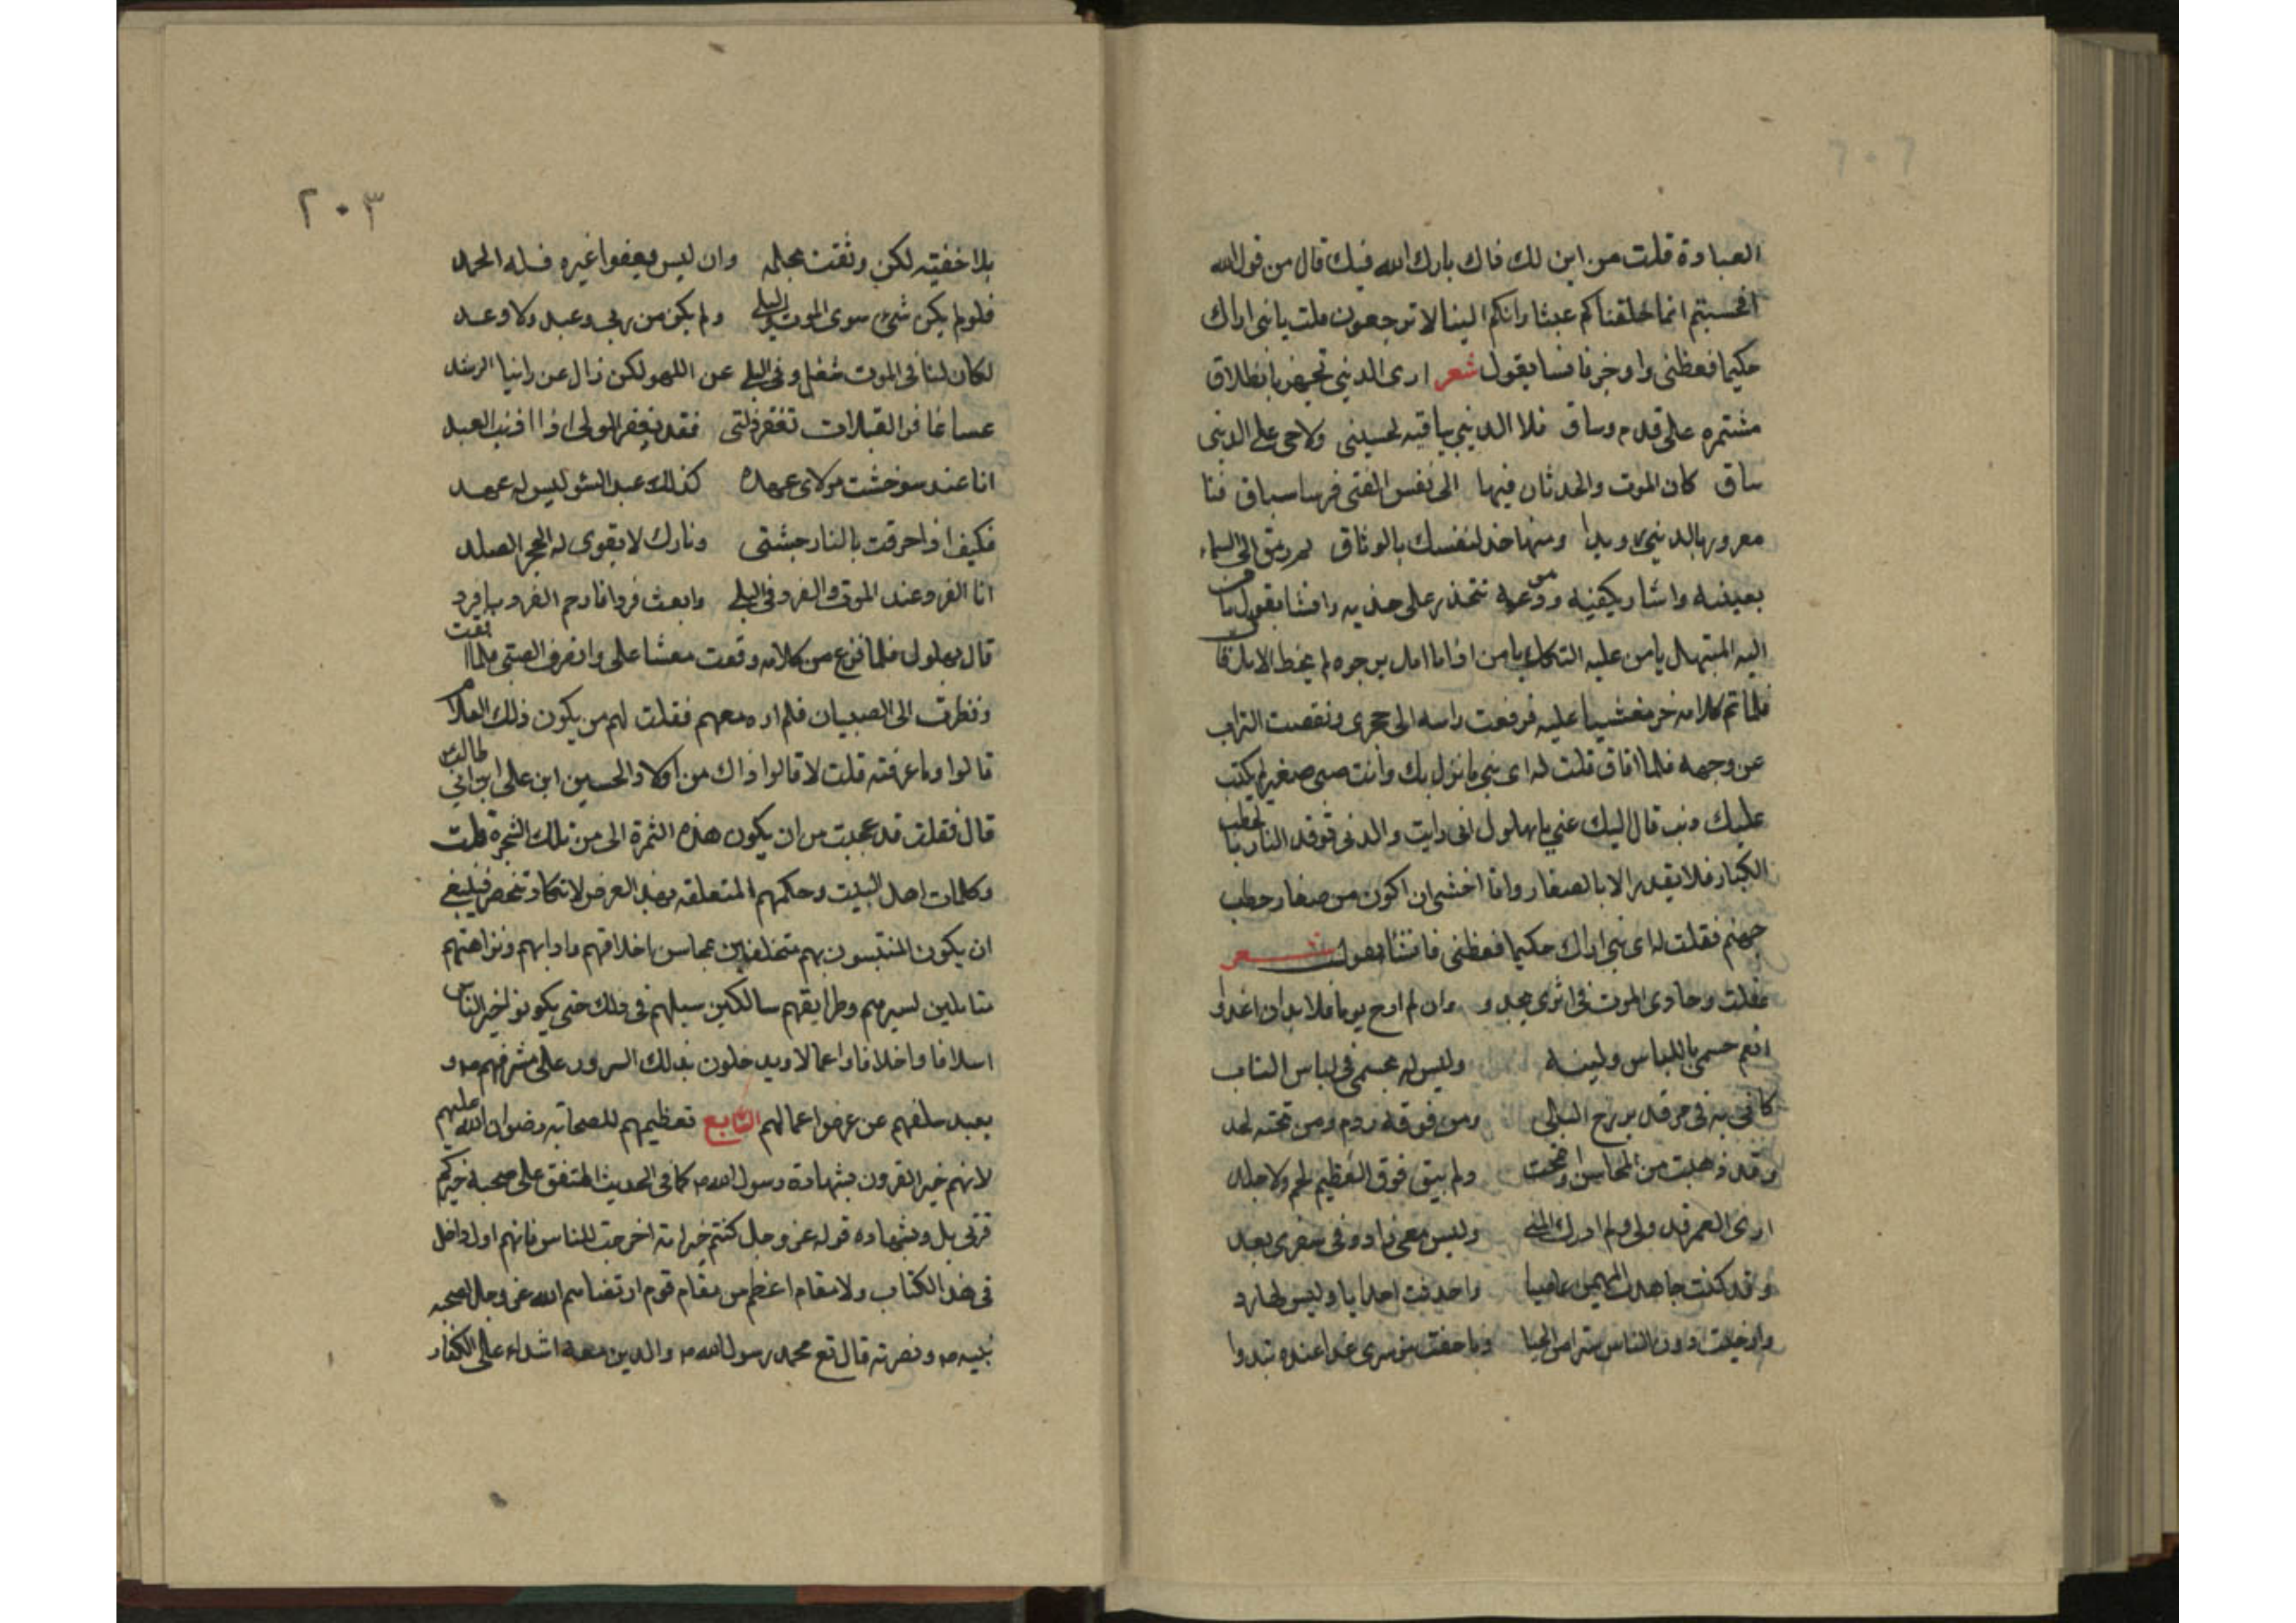 ٢٠٢
العبادة قلت من اين لك ذاك بارك الله فيك قال من قول الله
افحسبتم انما خلقناكم عبثا وانكم الينا لا ترجعون قلت يا بنى اراك
حكيما فعظنى واوخرنا فنسا يقول شعر ارى الدينى تجهز بانطلاق
مشتمره على قدم وساق فلا الدينى بباقيه لحسينى ولا حى على الدينى
ساق كان الموت والحدثان فيها الى نفس الفتى فرسا سباق فنا
معرورا بالدينى رويدا ومنها خذ لنفسك بالوثاق ثم رمق الى السماء
بعينيه واشار بكفيه ودموعه تتحدر على خديه وانشا يقول يا من
اليه المبتهل يا من عليه التكل يا من اذا ما امل يرجوه لم يخط الامل قا
فلما تم كلامه خر مغشيا عليه فرفعت راسه الى حجرى ونفضت التراب
عن وجهه فلما افاق قلت له اى بنى ما نزل بك وانت صبى صغير لم يكتب
عليك ذنب قال اليك عنى يا بهلول انى رايت والدتى توقد النار بالحطب
الكبار فلا يقدر الا بالصغار وانا اخشى ان اكون من صغار حطب
جهنم فقلت له اى بنى اراك حكيما فعظنى فانشا يقول شعر
غفلت وحادى الموت فى اثرى يحدو وان لم ارح يوما فلا بد ان اغدوا
انعم جسمى باللباس ولينه وليس له بجسمى فى لباس
كانى به فى مرقد برزخ البالى ومن فوقه ردم ومن تحته لحد
وقد ذهبت من المحاسن وانمحت ولم يبق فوق العظيم لحم ولا جلد
ارى العمر قد ولى ولم ادرك المنى وليس معى زاد وفى سفرى بعد
وقد كنت جاهرت المهيمن عاصيا واحدثت احداثا وليس لها رد
وارخيت دون الناس سترا من الحيا وما خفت من سرى غدا عنده تبدوا
٢٠٣
بلا خفيته لكن وثقت بحلمه وان ليس يعفوا غيره فله الحمد
فلو لم يكن شىء سوى الموت والبلى ولم يكن من ربى وعيد ولا وعد
لكان لنا فى الموت شغل وفى البلى عن اللهو لكن زال عن راينا الرشد
عسا غافر تغفر زلتى فقد يغفر المولى اذا اذنب العبد
انا عبد سو خنت مولاى عهده كذلك عبد السو ليس له عهد
فكيف اذا احرقت بالنار جثتى ونارك لا يقوى له الحجر الصلد
انا الفرد عند الموت والفرد فى البلى وابعث فردا فارحم الفرد يا فرد
قال بهلول فلما فرغ من كلامه وقعت مغشا على وانصرف الصبى فلما افقت
ونظرت الى الصبيان فلم اره معهم فقلت لهم من يكون ذلك الغلام
قالوا وما عرفته قلت لا قالوا ذاك من اولاد الحسين ابن على ابن ابى طالب
قال فقلت قد عجبت من ان يكون هذه الثمرة الى من تلك الشجرة قلت
وكلمات اهل البيت وحكمهم المتعلقه بهذ الغرض لا تكاد تنحصر فينبغى
ان يكون المنتسبون بهم متخلقين بمحاسن اخلاقهم وادابهم ونزاهتهم
متاملين لسيرهم وطرايقهم سالكين سبيلهم فى ذلك حتى يكونو لخير الناس
اسلافا واخلاقا واعمالا ويدخلون بذلك السرور على مشرفهم ص و
بعيد سلفهم عن عرضوا عمالهم السابع تعظيمهم للصحابه رضوان الله عليهم
لانهم خير القرون بشهادة رسول الله ص كما فى الحديث المتفق على صحبه خيركم
قرنى بل وبشهاده قوله عز وجل كنتم خير امة اخرجت للناس فانهم اول داخل
فى هذ الكتاب ولا مقام اعظم من مقام قوم ارتضاهم الله عز وجل لصحبه
نبيه ص ونصرته قال تع محمد رسول الله ص والدين معه اشداء على الكفار